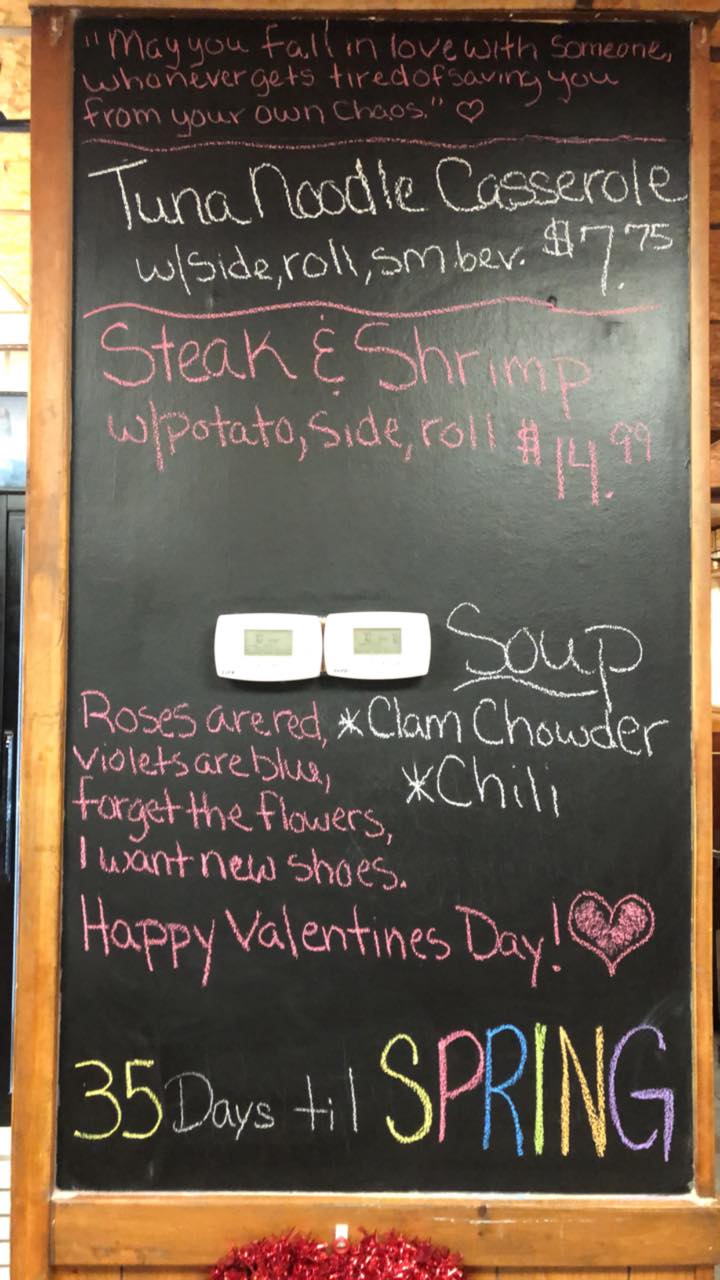 "May you fall in love with someone,
who never gets tired of saving you
from your own chaos." ♡
Tuna Noodle Casserole
w/side, roll, sm bev. $7.75
Steak & Shrimp
w/potato, side, roll $14.99
Soup
*Clam Chowder
*Chili
Roses are red,
violets are blue,
forget the flowers,
I want new shoes.
Happy Valentines Day!
35 Days til SPRING